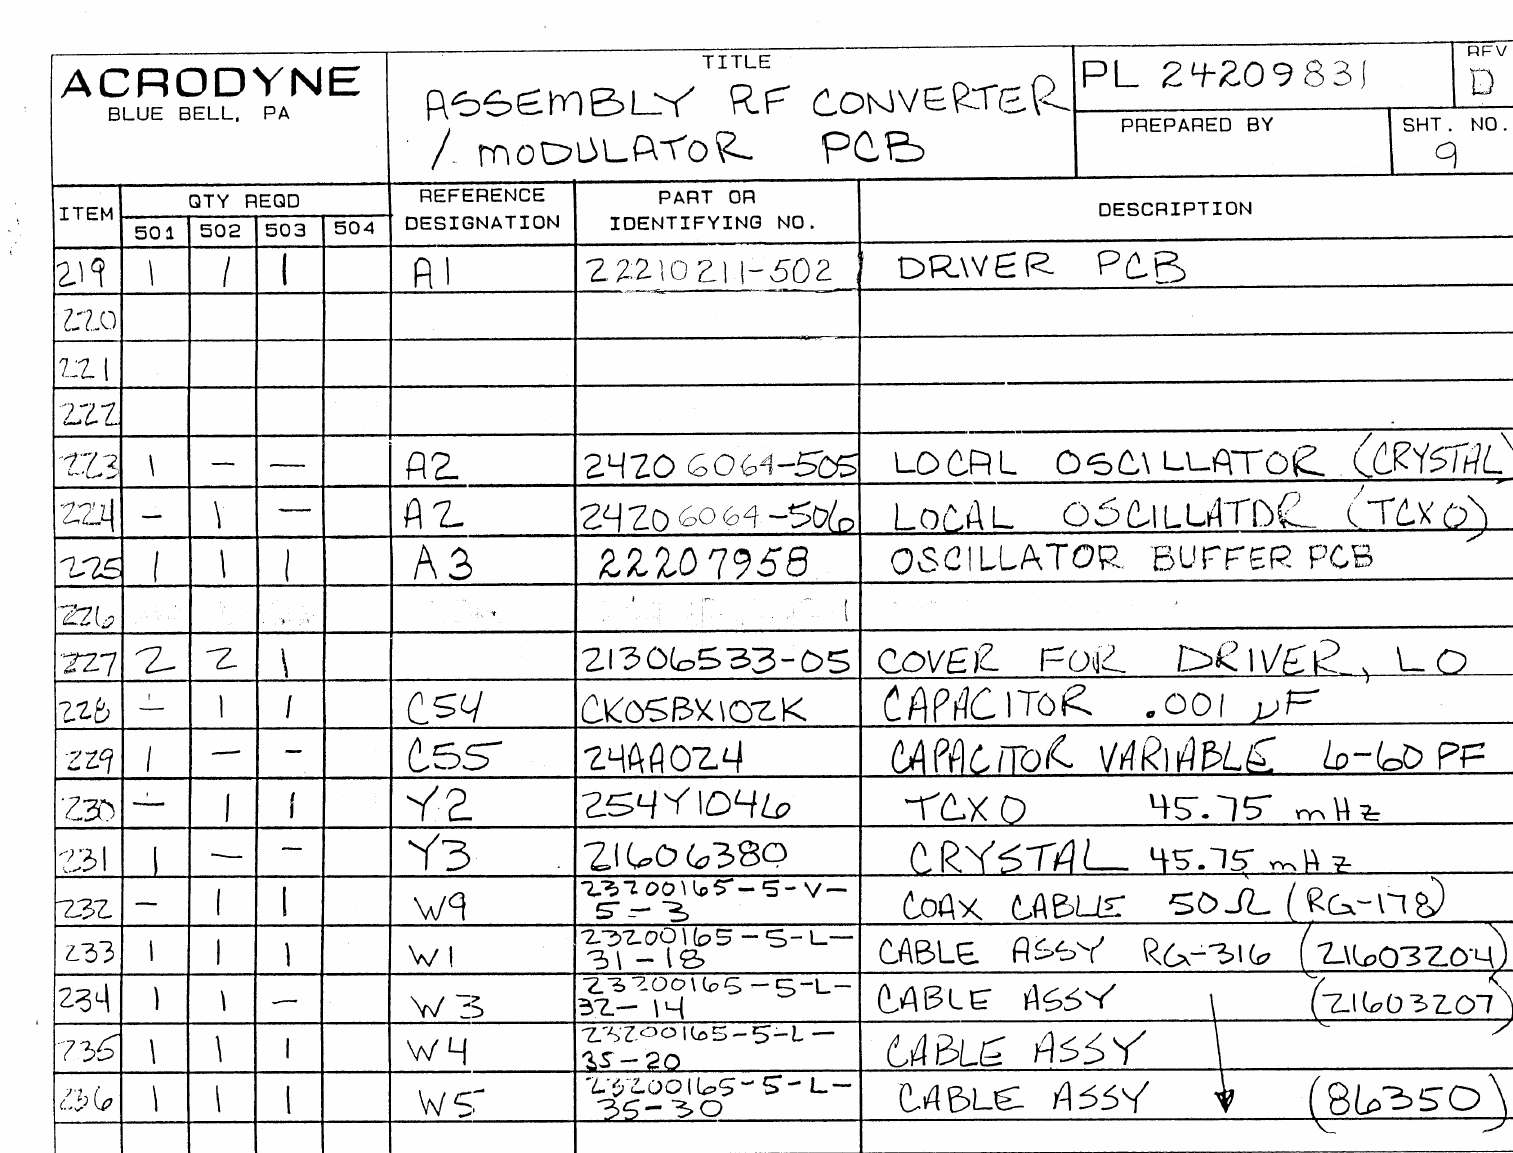 ACRODYNE
BLUE BELL, PA
TITLE
ASSEMBLY RF CONVERTER
/ MODULATOR PCB
PL 24209831
REV
D
PREPARED BY
SHT. NO.
9
ITEM QTY REQD REFERENCE DESIGNATION PART OR IDENTIFYING NO. DESCRIPTION
501 502 503 504
219 1 1 1 A1 22210211-502 DRIVER PCB
220
221
222
223 1 - - A2 24206064-505 LOCAL OSCILLATOR (CRYSTAL)
224 - 1 - A2 24206064-506 LOCAL OSCILLATOR (TCXO)
225 1 1 1 A3 22207958 OSCILLATOR BUFFER PCB
226
227 2 2 1 21306533-05 COVER FOR DRIVER, LO
228 - 1 1 C54 CK05BX102K CAPACITOR .001 µF
229 1 - - C55 24AA024 CAPACITOR VARIABLE 6-60 PF
230 - 1 1 Y2 254Y1046 TCXO 45.75 mHz
231 1 - - Y3 21606380 CRYSTAL 45.75 mHz
232 - 1 1 W9 23200165-5-V-5-3 COAX CABLE 50Ω (RG-178)
233 1 1 1 W1 23200165-5-L-31-18 CABLE ASSY RG-316 (21603204)
234 1 1 - W3 23200165-5-L-32-14 CABLE ASSY (21603207)
235 1 1 1 W4 23200165-5-L-35-20 CABLE ASSY
236 1 1 1 W5 23200165-5-L-35-30 CABLE ASSY (86350)